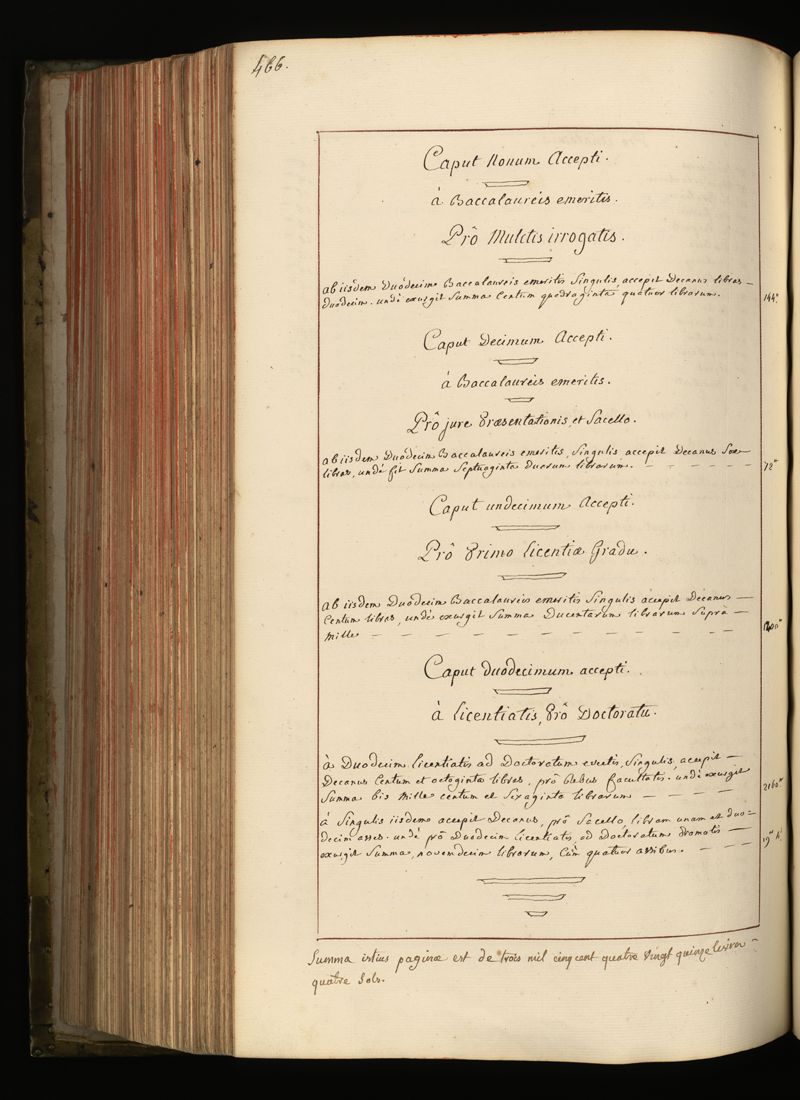 466.
Caput Nonum Accepti.
à Baccalaureis emeritis.
Prô Mulctis irrogatis.
ab iisdem Duodecim Baccalaureis emeritis Singulis, accepit Decanus libras
duodecim. undè exurgit Summa Centum quadraginta quatuor librarum.
144
Caput Decimum Accepti.
à Baccalaureis emeritis.
Prô jure Præsentationis, et Sacello.
ab iisdem Duodecim Baccalaureis emeritis, Singulis accepit Decanus Sex
libras, undè fit Summa Septuaginta duarum librarum.
72
Caput undecimum Accepti.
Prô Primo licentiæ Gradu.
ab iisdem Duodecim Baccalaureis emeritis Singulis accepit Decanus
Centum libras, undè exurgit Summa Ducentarum librarum Suprà
Mille
1200
Caput duodecimum accepti.
à licentiatis, Prô Doctoratu.
à Duodecim licentiatis ad Doctoratum evectis, Singulis, accepit
Decanus Centum et octoginta libras, prô Rebus facultatis. undè exurgit
Summa bis Mille centum et Sexaginta librarum
2160
à Singulis iisdem accepit Decanus, prô Sacello, libram unam et duo=
decim asses. undè prô Duodecim licentiatis ad Doctoratum Promotis
exurgit Summa, novemdecim librarum, Cùm quatuor assibus.
19 4
Summa istius paginæ est de trois mil cinq cent quatre vingt quinze livres
quatre Sols.